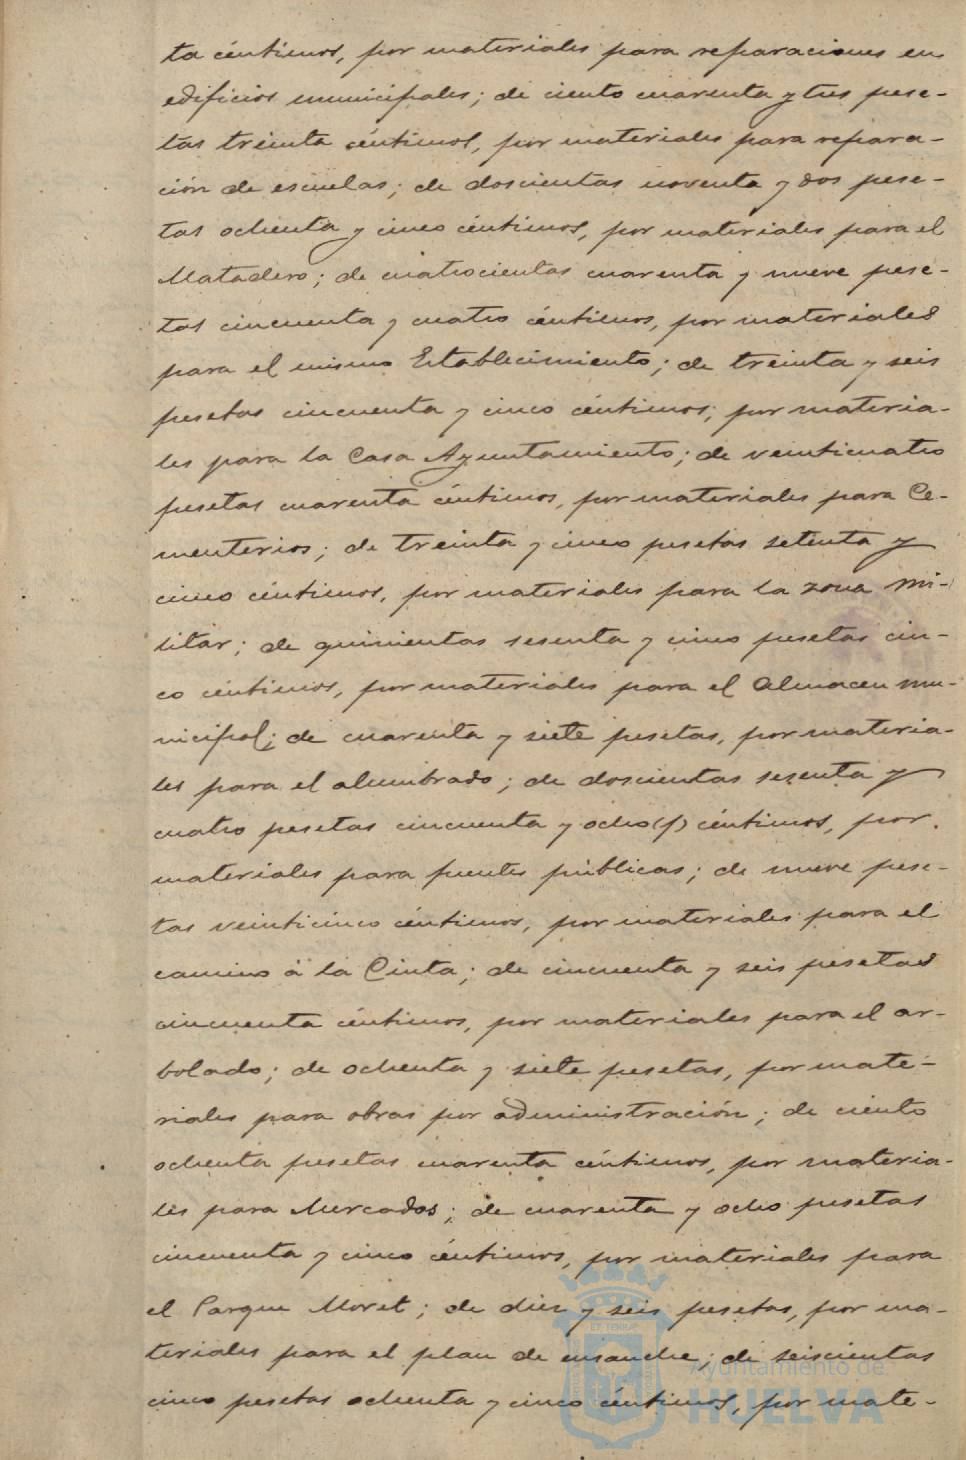 ta céntimos, por materiales para reparaciones en
edificios municipales; de ciento cuarenta y tres pese-
tas treinta céntimos, por materiales para repara-
ción de escuelas; de doscientas noventa y dos pese-
tas ochenta y cinco céntimos, por materiales para el
Matadero; de cuatrocientas cuarenta y nueve pese-
tas cincuenta y cuatro céntimos, por materiales
para el mismo Establecimiento; de treinta y seis
pesetas cincuenta y cinco céntimos, por materia-
les para la Casa Ayuntamiento; de veinticuatro
pesetas cuarenta céntimos, por materiales para Ce-
menterios; de treinta y cinco pesetas setenta y
cinco céntimos, por materiales para la zona mi-
litar; de quinientas sesenta y cinco pesetas cin-
co céntimos, por materiales para el Almacen mu-
nicipal; de cuarenta y siete pesetas, por materia-
les para el alumbrado; de doscientas sesenta y
cuatro pesetas cincuenta y ocho céntimos, por
materiales para fuentes públicas; de nueve pese-
tas veinticinco céntimos, por materiales para el
camino á la Cinta; de cincuenta y seis pesetas
cincuenta céntimos, por materiales para el ar-
bolado; de ochenta y siete pesetas, por mate-
riales para obras por administración; de ciento
ochenta pesetas cuarenta céntimos, por materia-
les para Mercados; de cuarenta y ocho pesetas
cincuenta y cinco céntimos, por materiales para
el Parque Moret; de diez y seis pesetas, por ma-
teriales para el plan de ensanche; de seiscientas
cinco pesetas ochenta y cinco céntimos, por mate-
Ayuntamiento de
HUELVA